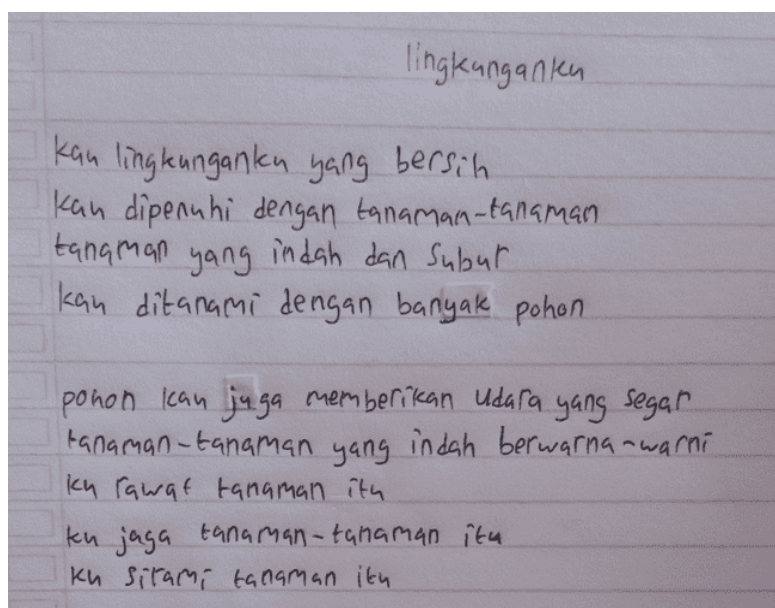 lingkunganku
kau lingkunganku yang bersih
kau dipenuhi dengan tanaman-tanaman
tanaman yang indah dan subur
kau ditanami dengan banyak pohon
pohon kau juga memberikan udara yang segar
tanaman-tanaman yang indah berwarna-warni
ku rawat tanaman itu
ku jaga tanaman-tanaman itu
ku sirami tanaman itu